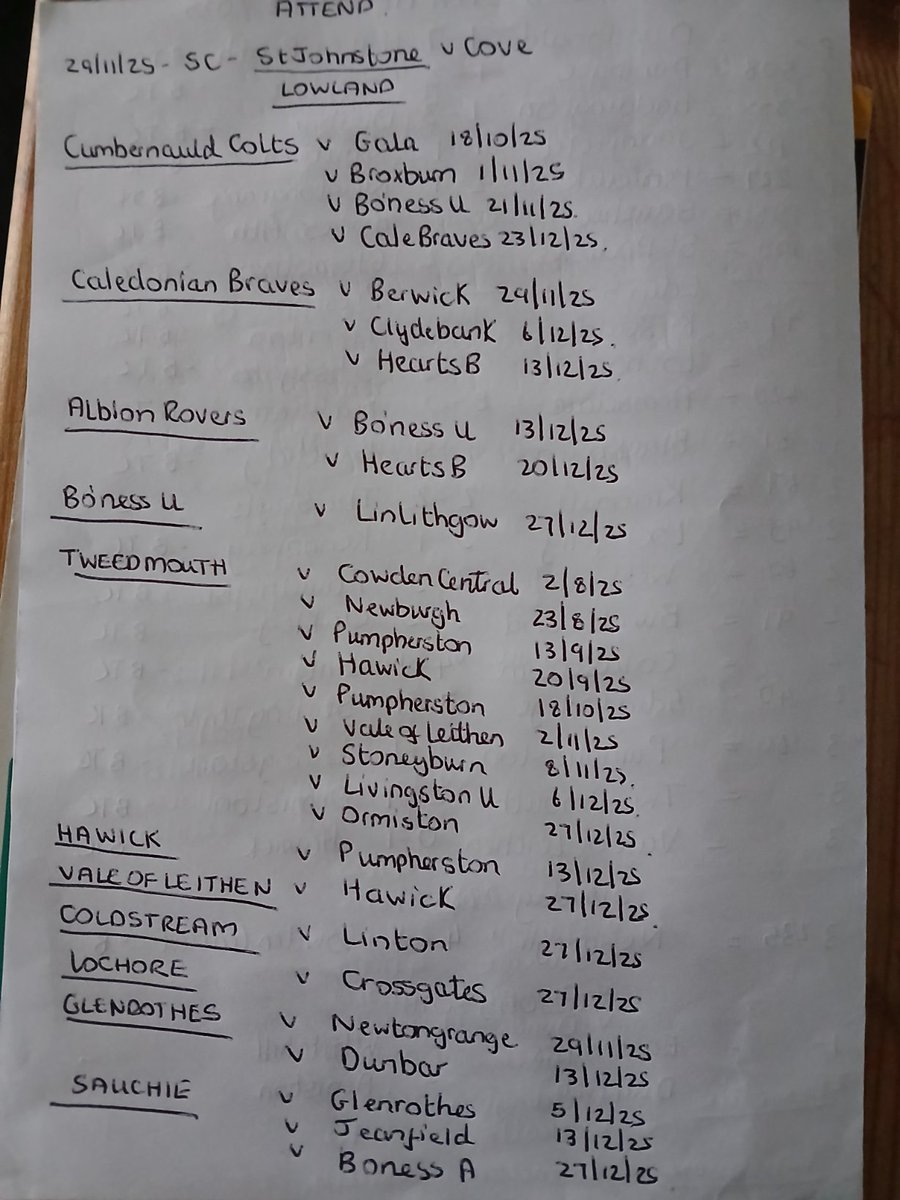 ATTEND.
29/11/25 - SC - StJohnstone v Cove
LOWLAND
Cumbernauld Colts v Gala 18/10/25
v Broxburn 1/11/25
v Bo'ness U 21/11/25.
v Cale Braves 23/12/25.
Caledonian Braves v Berwick 29/11/25
v Clydebank 6/12/25.
v Hearts B 13/12/25.
Albion Rovers v Bo'ness U 13/12/25
v Hearts B 20/12/25
Bo'ness U v Linlithgow 27/12/25
TWEEDMOUTH v Cowden Central 2/8/25
v Newburgh 23/8/25
v Pumpherston 13/9/25
v Hawick 20/9/25
v Pumpherston 18/10/25
v Vale of Leithen 2/11/25
v Stoneyburn 8/11/25.
v Livingston U 6/12/25.
v Ormiston 27/12/25.
HAWICK v Pumpherston 13/12/25
VALE OF LEITHEN v Hawick 27/12/25.
COLDSTREAM v Linton 27/12/25
LOCHORE v Crossgates 27/12/25
GLENROTHES v Newtongrange 29/11/25
v Dunbar 13/12/25
SAUCHIE v Glenrothes 5/12/25
v Jeanfield 13/12/25
v Boness A 27/12/25